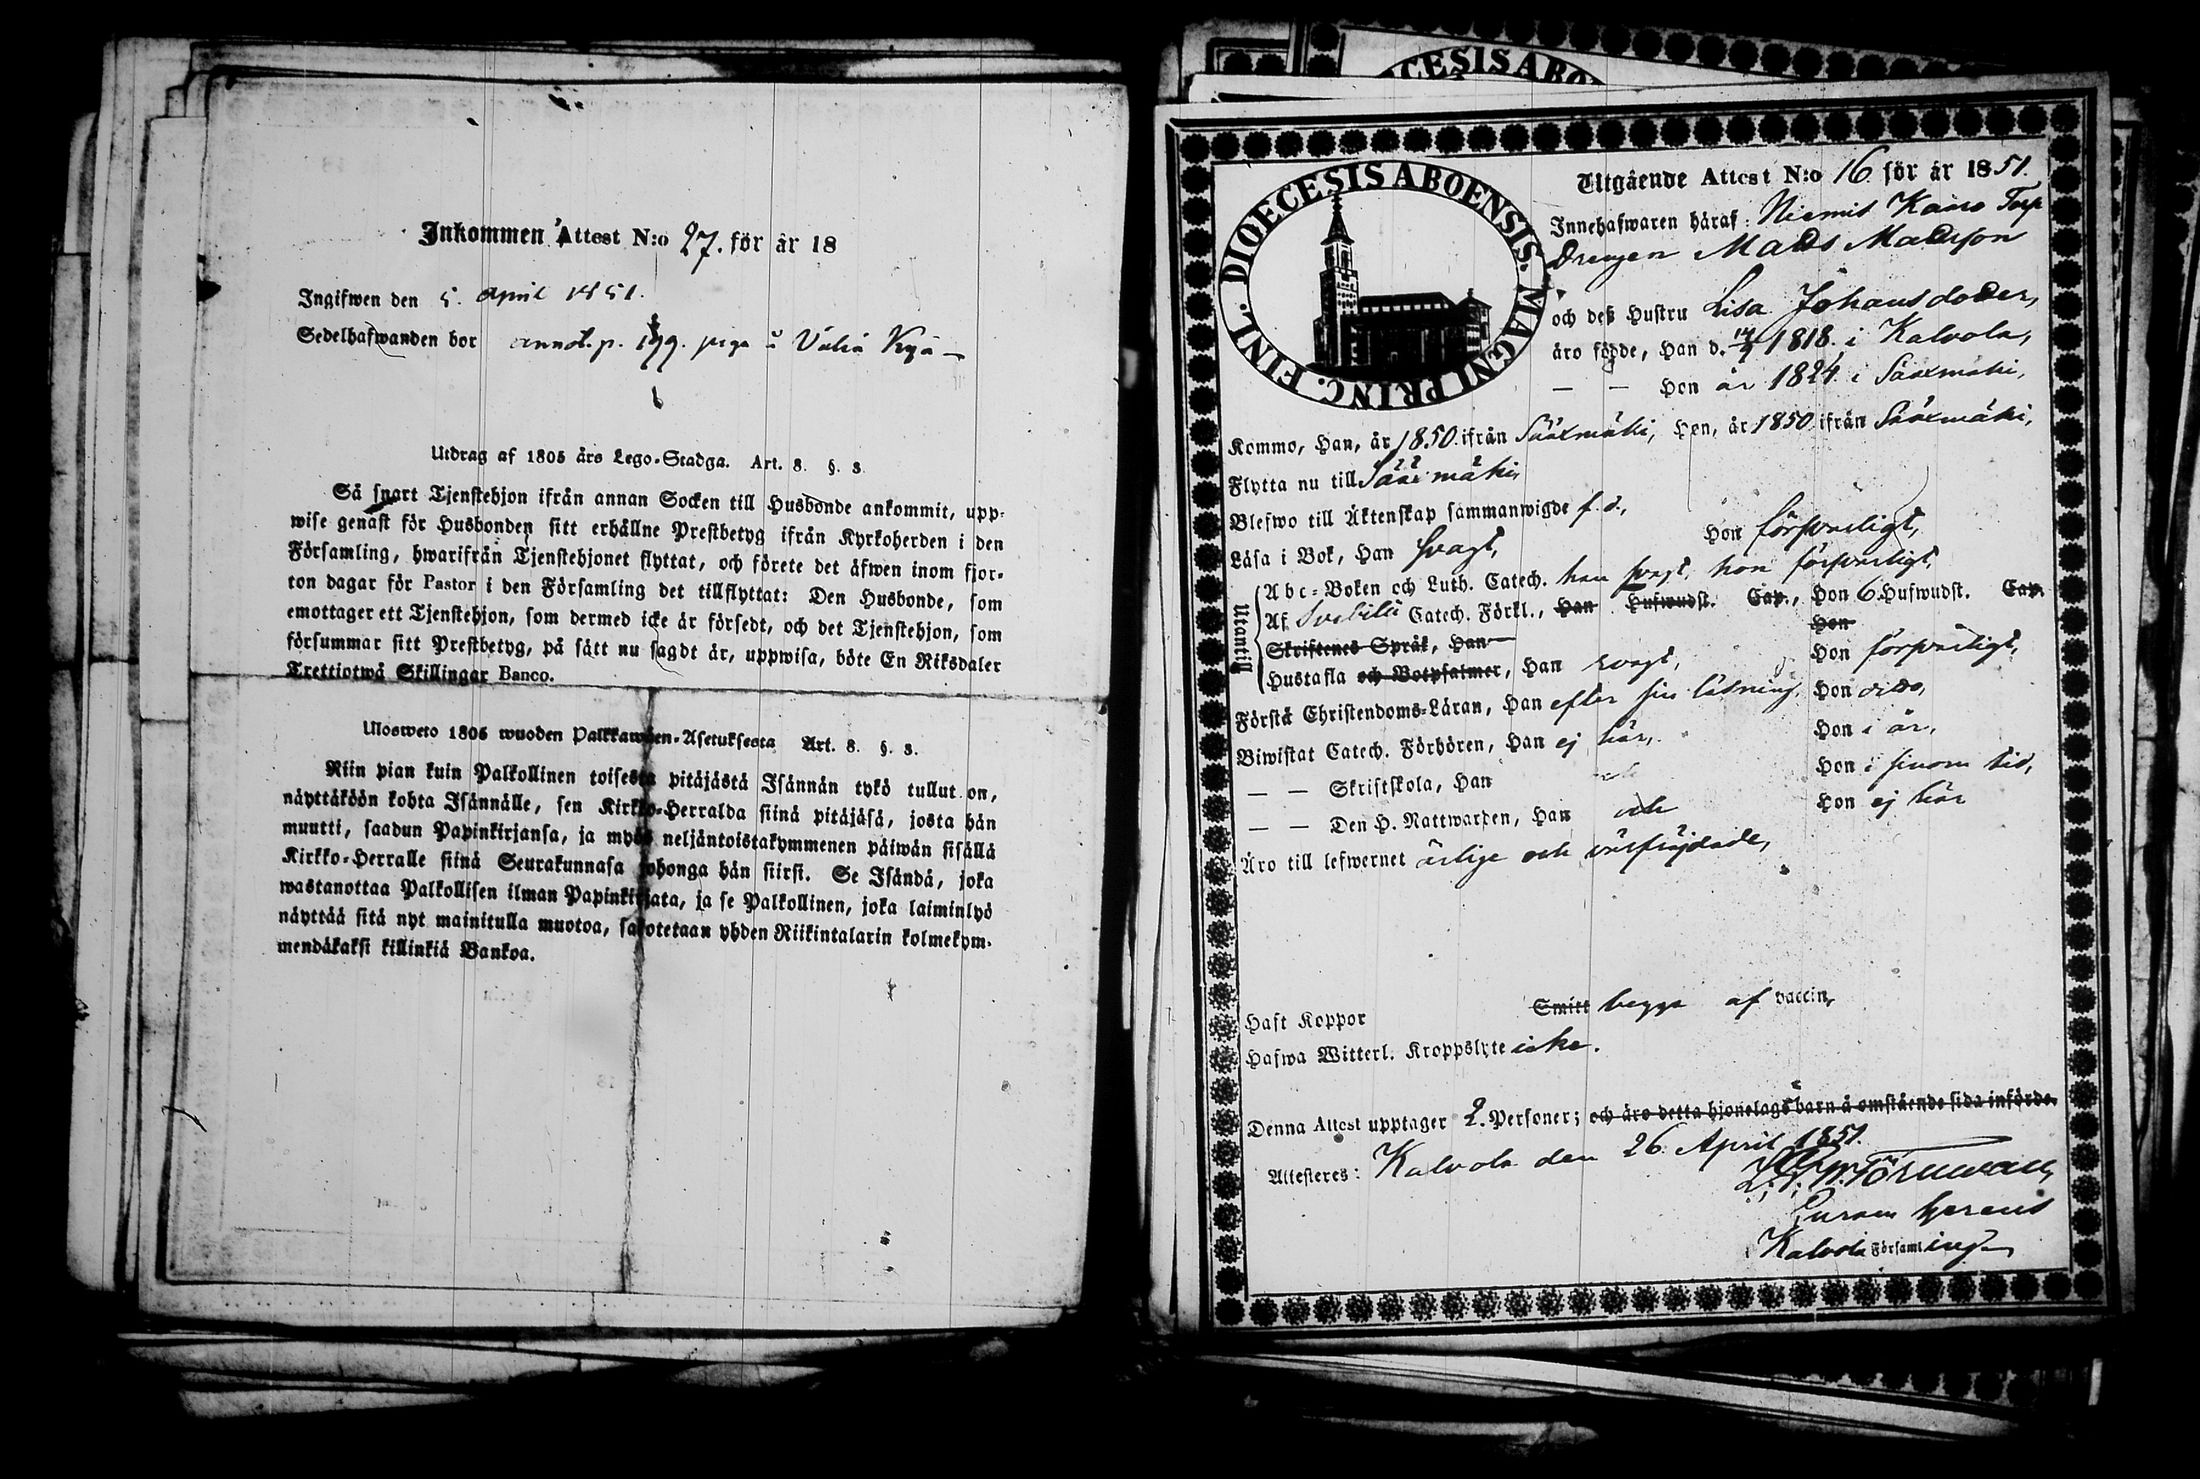 Inkommen Attest N:o 27. för år 18
Ingifwen den 5. April 1851.
Sedelhafwanden bor annot. p. 199. piga i Väliä Kyä
Utdrag af 1805 års Lego-Stadga. Art. 8. §. 3.
Så snart Tjenstehjon ifrån annan Socken till Husbonde ankommit, upp-
wise genast för Husbonden sitt erhållne Prestbetyg ifrån Kyrkoherden i den
Församling, hwarifrån Tjenstehjonet flyttat, och förete det äfwen inom fjor-
ton dagar för Pastor i den Församling det tillflyttat: Den Husbonde, som
emottager ett Tjenstehjon, som dermed icke är försedt, och det Tjenstehjon, som
försummar sitt Prestbetyg, på sätt nu sagdt är, uppwisa, böte En Riksdaler
Trettiotwå Skillingar Banco.
Ulosweto 1805 wuoden Palkkawäen-Asetuksesta Art. 8. §. 3.
Niin pian kuin Palkollinen toisesta pitäjästä Isännän tykö tullut on,
näyttäköön kohta Isännälle, sen Kirkko-Herralda siinä pitäjäsä, josta hän
muutti, saadun Papinkirjansa, ja myös neljäntoistakymmenen päiwän sisällä
Kirkko-Herralle siinä Seurakunnasa johonga hän siirsi. Se Isändä, joka
wastanottaa Palkollisen ilman Papinkirjata, ja se Palkollinen, joka laiminlyö
näyttää sitä nyt mainitulla muotoa, sakotetaan yhden Riikintalarin kolmekym-
mendäkaksi killinkiä Bankoa.
DIOECESIS ABO
DIOECESIS ABOENSIS. MAGNI PRINC. FINL.
Utgående Attest N:o 16 för år 1851.
Innehafwaren häraf: Niemis Kairo Torp
Drengen Mads Madsson
och deß Hustru Lisa Johansdoder,
äro födde, Han d. 14/9 1818. i Kalvola,
— — Hon år 1824. i Sääxmäki,
Kommo, Han, år 1850 ifrån Sääxmäki, Hon, år 1850 ifrån Sääxmäki,
Flytta nu till Sääxmäki,
Blefwo till Äktenskap sammanwigde f. å.,
Läsa i Bok, Han svagt, Hon försvarligt,
Utantill
Abc-Boken och Luth. Catech. han svagt, hon försvarligt,
Af Svebilii Catech. Förkl., Han Hufwudst. Cap., Hon 6. Hufwudst. Cap.
Skriftenes Språk, Han Hon
Hustafla och Botpsalmer, Han svagt, Hon försvarligt,
Förstå Christendoms-Läran, Han efter sin läsning, Hon dido,
Biwistat Catech. Förhören, Han ej här, Hon i år,
— — Skriftskola, Han Hon i sinom tid,
— — Den H. Nattwarden, Han Hon ej här
Äro till lefwernet ärlige och välfräjdade,
Haft Koppor Smitt begge af vaccin,
Hafwa Witterl. Kroppslyte icke.
Denna Attest upptager 2. Personer; och äro detta hjonelags barn å omstående sida införde.
Attesteres: Kalvola den 26. April 1851.
Törnwall
Kalvola Församling